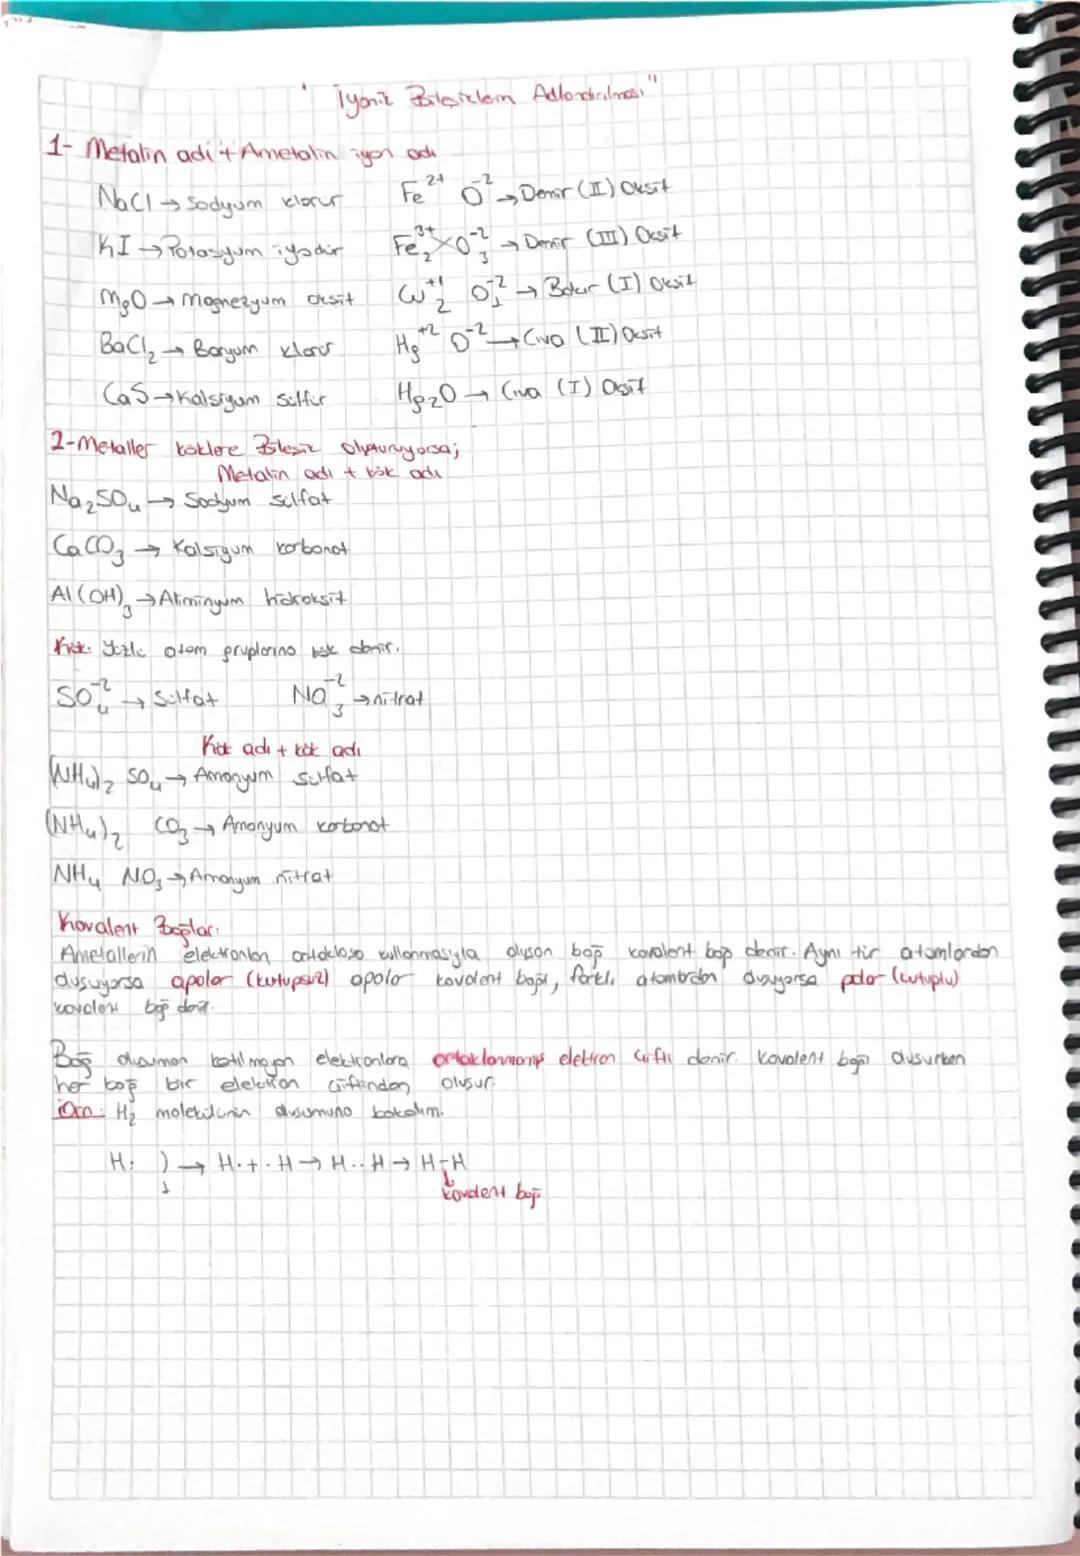 "İyonik Bileşiklerin Adlandırılması"
1- Metalin adı + Ametalin iyon adı
NaCl → Sodyum klorür Fe²⁺ O⁻² → Demir (II) Oksit
KI → Potasyum iyodür Fe₂³⁺ O₃⁻² → Demir (III) Oksit
MgO → Magnezyum oksit Cu₂⁺¹ O₁⁻² → Bakır (I) Oksit
BaCl₂ → Baryum klorür Hg⁺² O⁻² → Civa (II) Oksit
CaS → Kalsiyum sülfür Hg₂O → Civa (I) Oksit
2- Metaller köklere Bileşik oluşturuyorsa;
Metalin adı + kök adı
Na₂SO₄ → Sodyum sülfat
CaCO₃ → Kalsiyum karbonat
Al(OH)₃ → Alüminyum hidroksit
Kök: Yüzlü atom gruplarına kök denir.
SO₄⁻² → Sülfat NO₃⁻² → nitrat
Kök adı + kök adı
(NH₄)₂ SO₄ → Amonyum sülfat
(NH₄)₂ CO₃ → Amonyum karbonat
NH₄ NO₃ → Amonyum nitrat
Kovalent Bağlar:
Ametallerin elektronları ortaklaşa kullanmasıyla oluşan bağ kovalent bağ denir. Aynı tür atomlardan
oluşuyorsa apolar (kutupsuz) apolar kovalent bağı, farklı atomlardan oluşuyorsa polar (kutuplu)
kovalent bağ denir.
Bağ oluşuman katılmayan elektronlara ortaklanmamış elektron çifti denir. Kovalent bağı oluşurken
her bağ bir elektron çiftinden oluşur.
Örn: H₂ molekülünün oluşumuna bakalım.
H: ) → H· + ·H → H··H → H-H
1 ↓
kovalent bağ